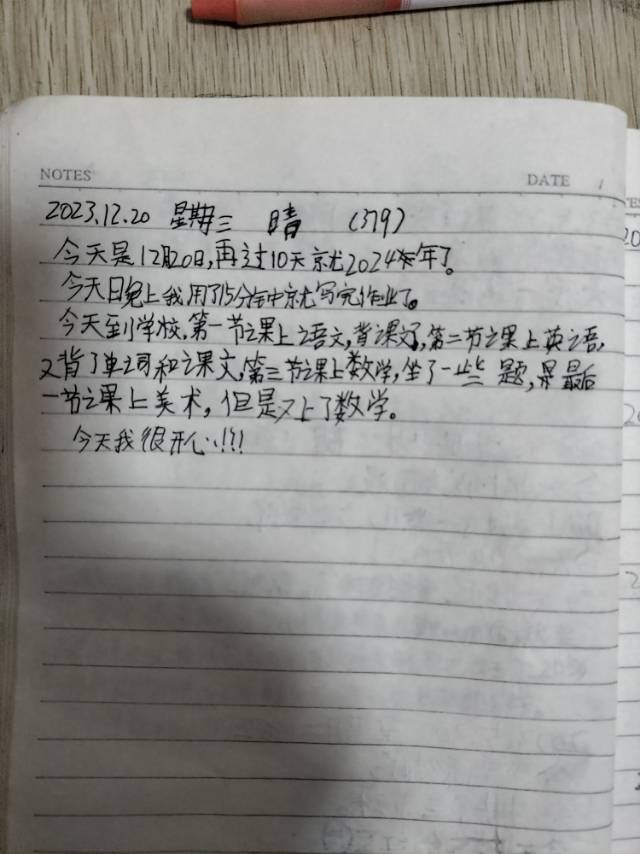 NOTES DATE
2023.12.20 星期三 晴 (379)
今天是12月20日,再过10天就2024年了。
今天日晚上我用了15分钟就写完作业了。
今天到学校,第一节课上语文,背课文,第二节课上英语,
又背了单词和课文,第三节课上数学,坐了一些题,最后
一节课上美术,但是又上了数学。
今天我很开心!!!